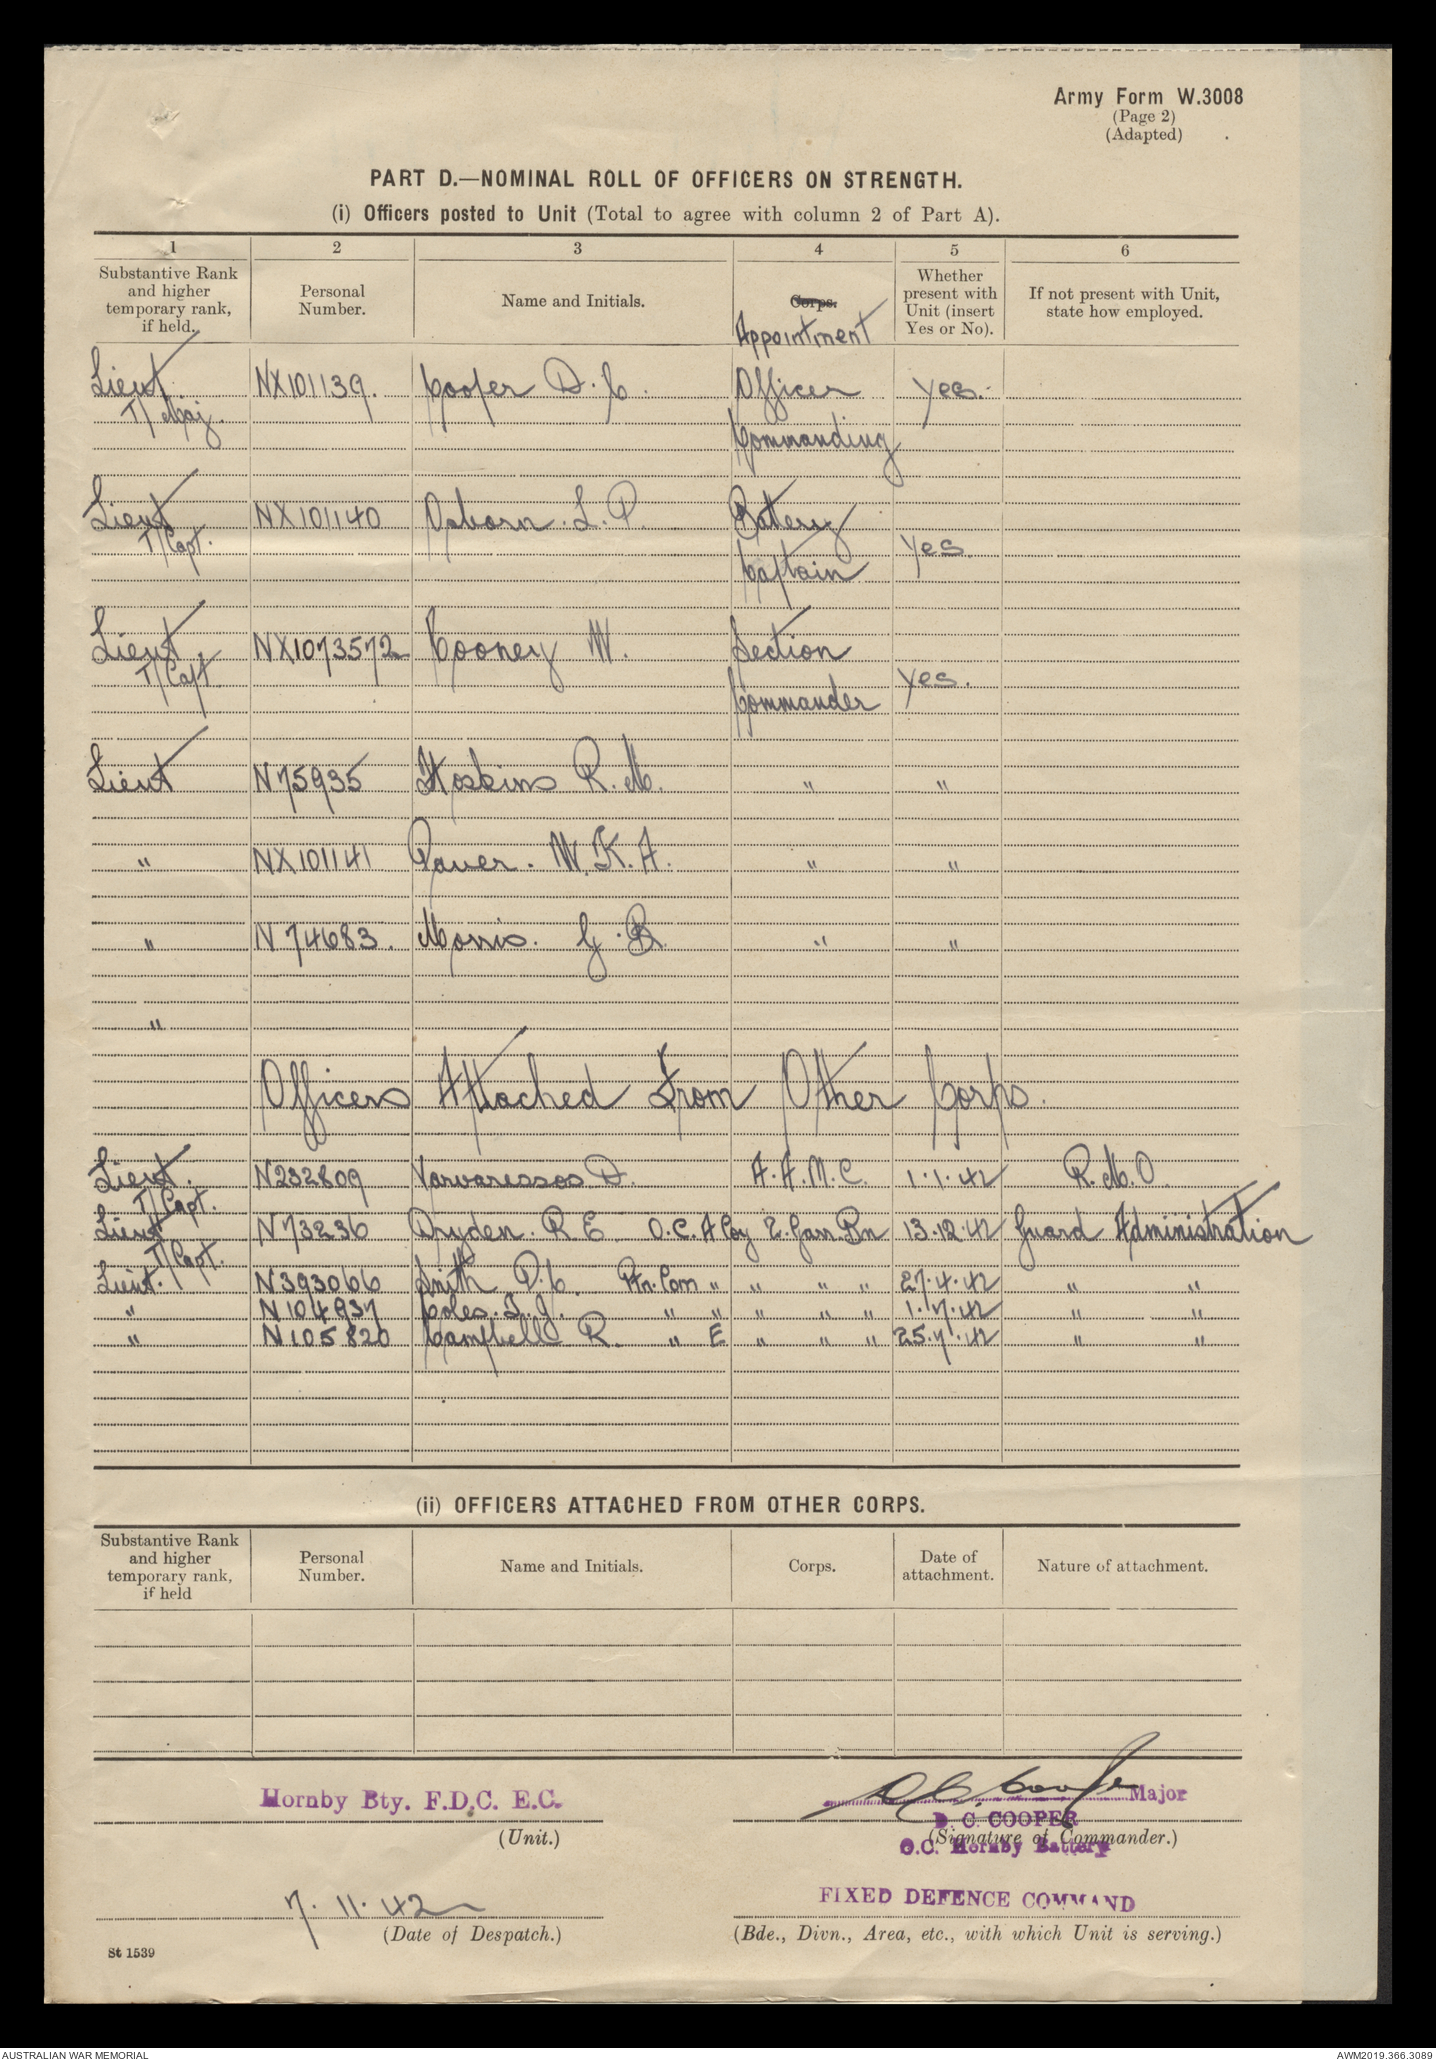 Army Form W.3008
(Page 2)
(Adapted)
PART D.—NOMINAL ROLL OF OFFICERS ON STRENGTH.
(i) Officers posted to Unit (Total to agree with column 2 of Part A).
1 2 3 4 5 6
Substantive Rank and higher temporary rank, if held.
Personal Number.
Name and Initials.
Corps.
Appointment
Whether present with Unit (insert Yes or No).
If not present with Unit, state how employed.
Lieut NX101139. Cooper D.C. Officer yes.
T/Maj.
Commanding
Lieut NX101140 Osborn. L.P. Battery
T/Capt. yes.
Captain
Lieut NX1073572 Cooney W. Section
T/Capt yes.
Commander
Lieut N75935 Hoskins R.M. " "
" NX101141 Paver. W.K.A. " "
" N74683. Morris. G.B. " "
"
Officers Attached From Other Corps.
Lieut. N232809 Varvaressos D. A.A.M.C. 1.1.42 R.M.O.
T/Capt.
Lieut N73236 Dryden. R E. O.C. A Coy E. Garr. Bn 13.12.42 Guard Administration
T/Capt.
Lieut. N393066 Smith D.C. Ptn. Com " " " " 27.4.42 " "
" N104937 Coles. L.J. " " " " " 1.7.42 " "
" N105820 Campbell R. " E " " " 25.7.42 " "
(ii) OFFICERS ATTACHED FROM OTHER CORPS.
Substantive Rank and higher temporary rank, if held
Personal Number.
Name and Initials.
Corps.
Date of attachment.
Nature of attachment.
Hornby Bty. F.D.C. E.C.
(Unit.)
D C. Cooper Major
D. C. COOPER
(Signature of Commander.)
O.C. Hornby Battery
7.11.42
(Date of Despatch.)
FIXED DEFENCE COMMAND
(Bde., Divn., Area, etc., with which Unit is serving.)
St 1539
AUSTRALIAN WAR MEMORIAL
AWM2019.366.3089